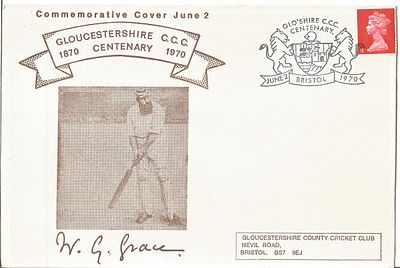 Commemorative Cover June 2
GLOUCESTERSHIRE C.C.C.
1870 CENTENARY 1970
GLO'SHIRE C.C.C.
CENTENARY.
JUNE 2 BRISTOL 1970
W. G. Grace.
GLOUCESTERSHIRE COUNTY CRICKET CLUB
NEVIL ROAD,
BRISTOL. BS7 9EJ